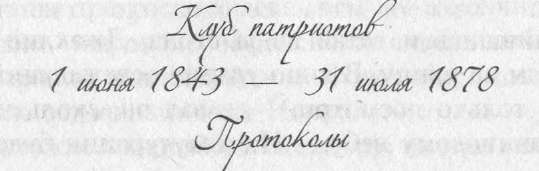 Клуб патриотов
1 июня 1843 — 31 июля 1878
Протоколы